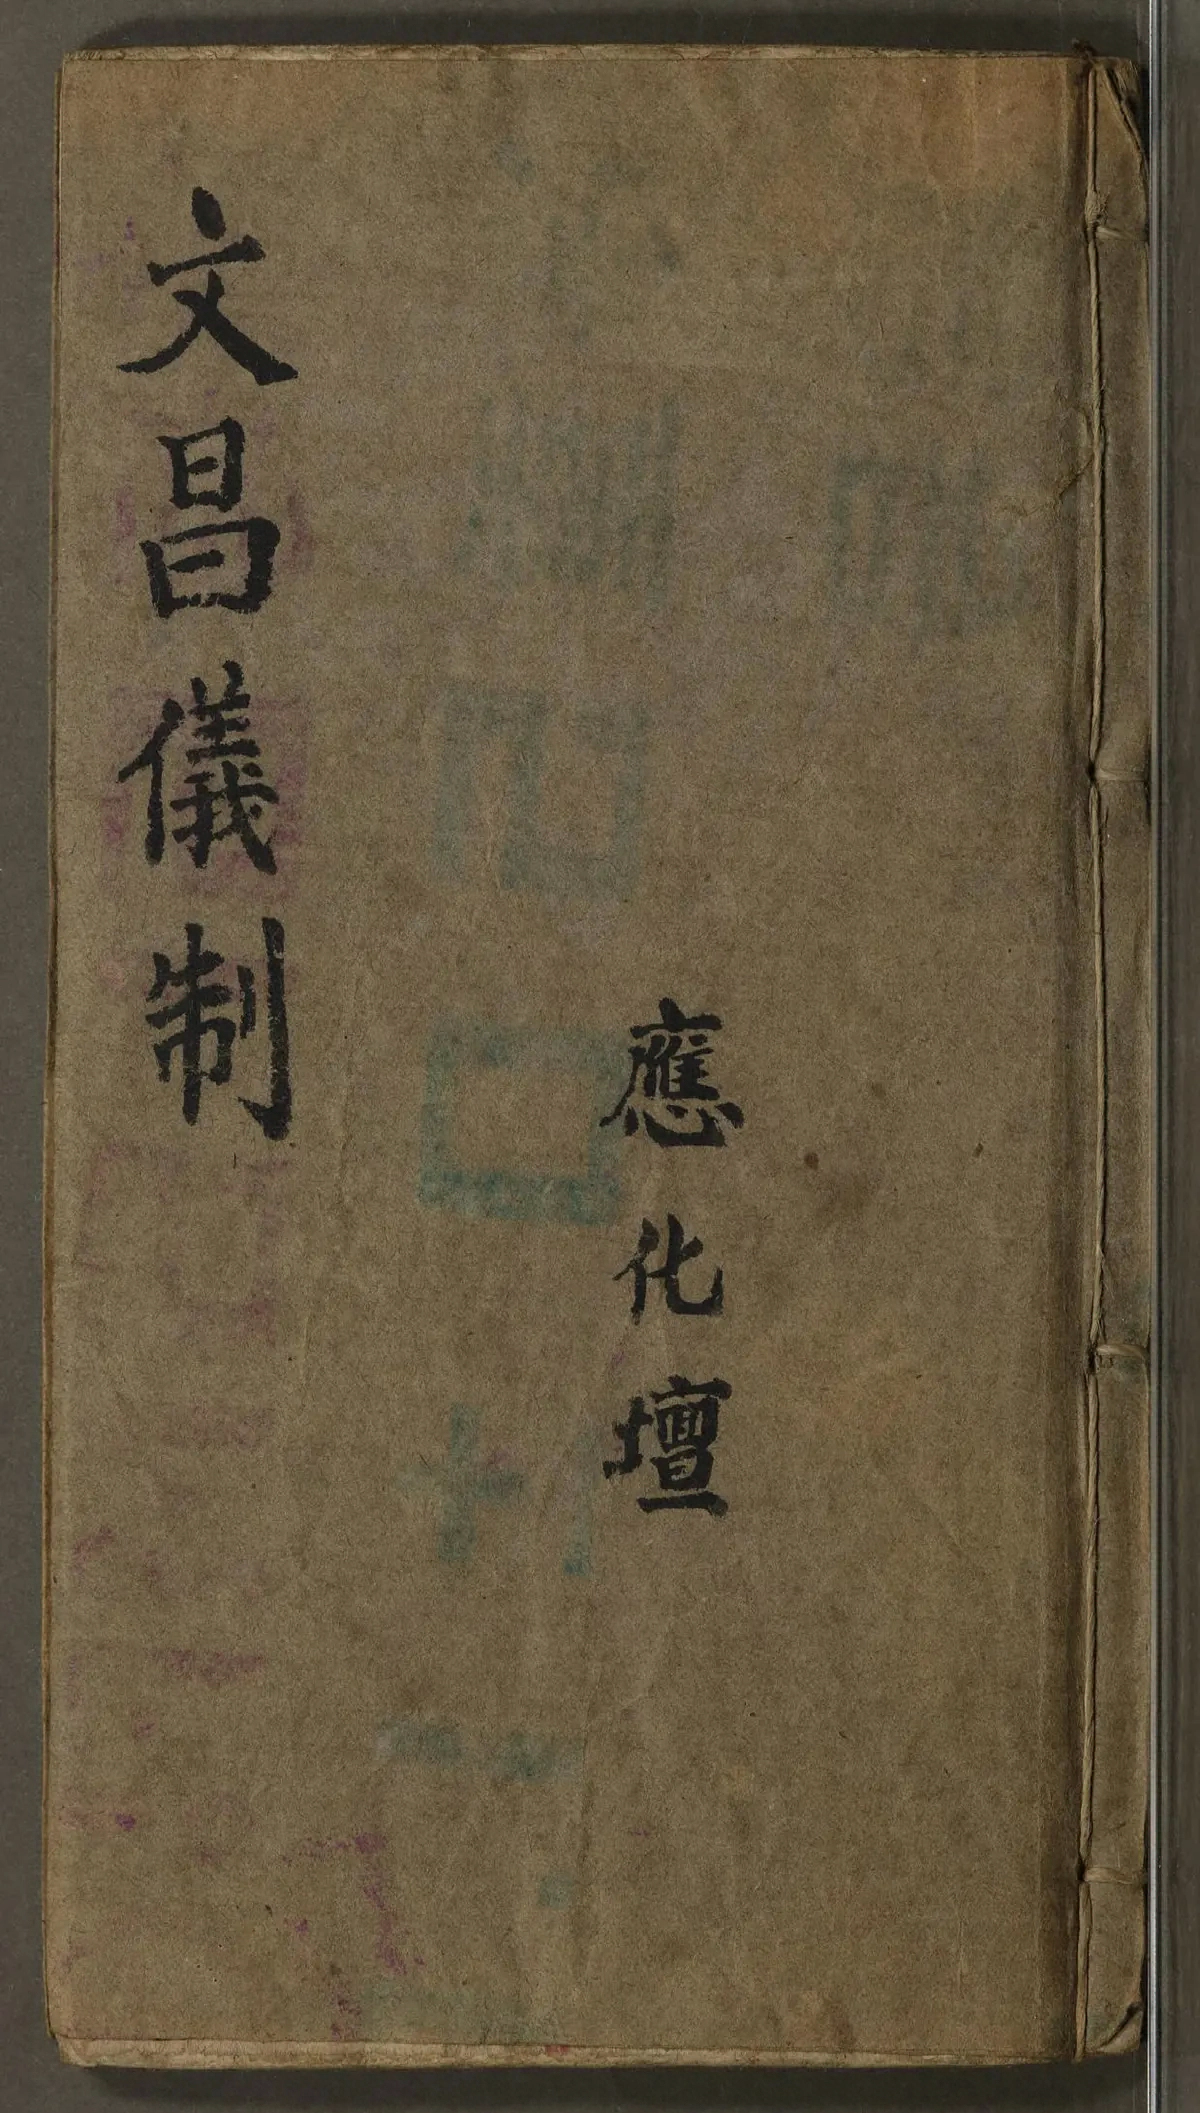 應化壇
文昌儀制